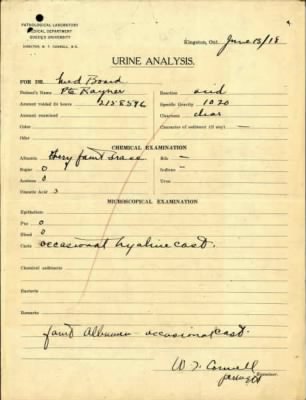 PATHOLOGICAL LABORATORY
MEDICAL DEPARTMENT
QUEEN'S UNIVERSITY
DIRECTOR, W. T. CONNELL, M.D.
Kingston, Ont. June 13/18
URINE ANALYSIS.
FOR DR. Med Board
Patient's Name Pte Rayner Reaction acid
Amount voided 24 hours 2158596 Specific Gravity 1020
Amount examined Clearness clear
Color Character of sediment (if any) —
Odor
CHEMICAL EXAMINATION
Albumin Very faint trace Bile -
Sugar 0 Indican -
Acetone 0 Urea
Diacetic Acid
MICROSCOPICAL EXAMINATION
Epithelium:
Pus 0
Blood 0
Casts occasional hyaline cast.
Chemical sediments:
Bacteria
Remarks
faint Albumen - occasional cast.
W. T. Connell
Examiner.